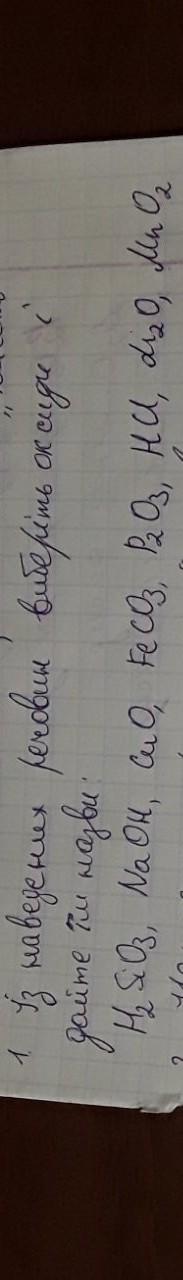 1. Із наведених речовин, виберіть оксиди і
дайте їм назви:
H₂SiO₃, NaOH, CuO, FeCO₃, P₂O₃, HCl, Li₂O, MnO₂